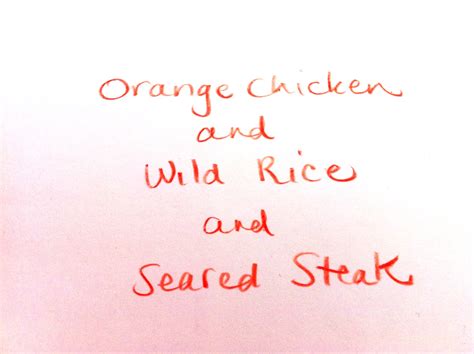 Orange Chicken
and
Wild Rice
and
Seared Steak